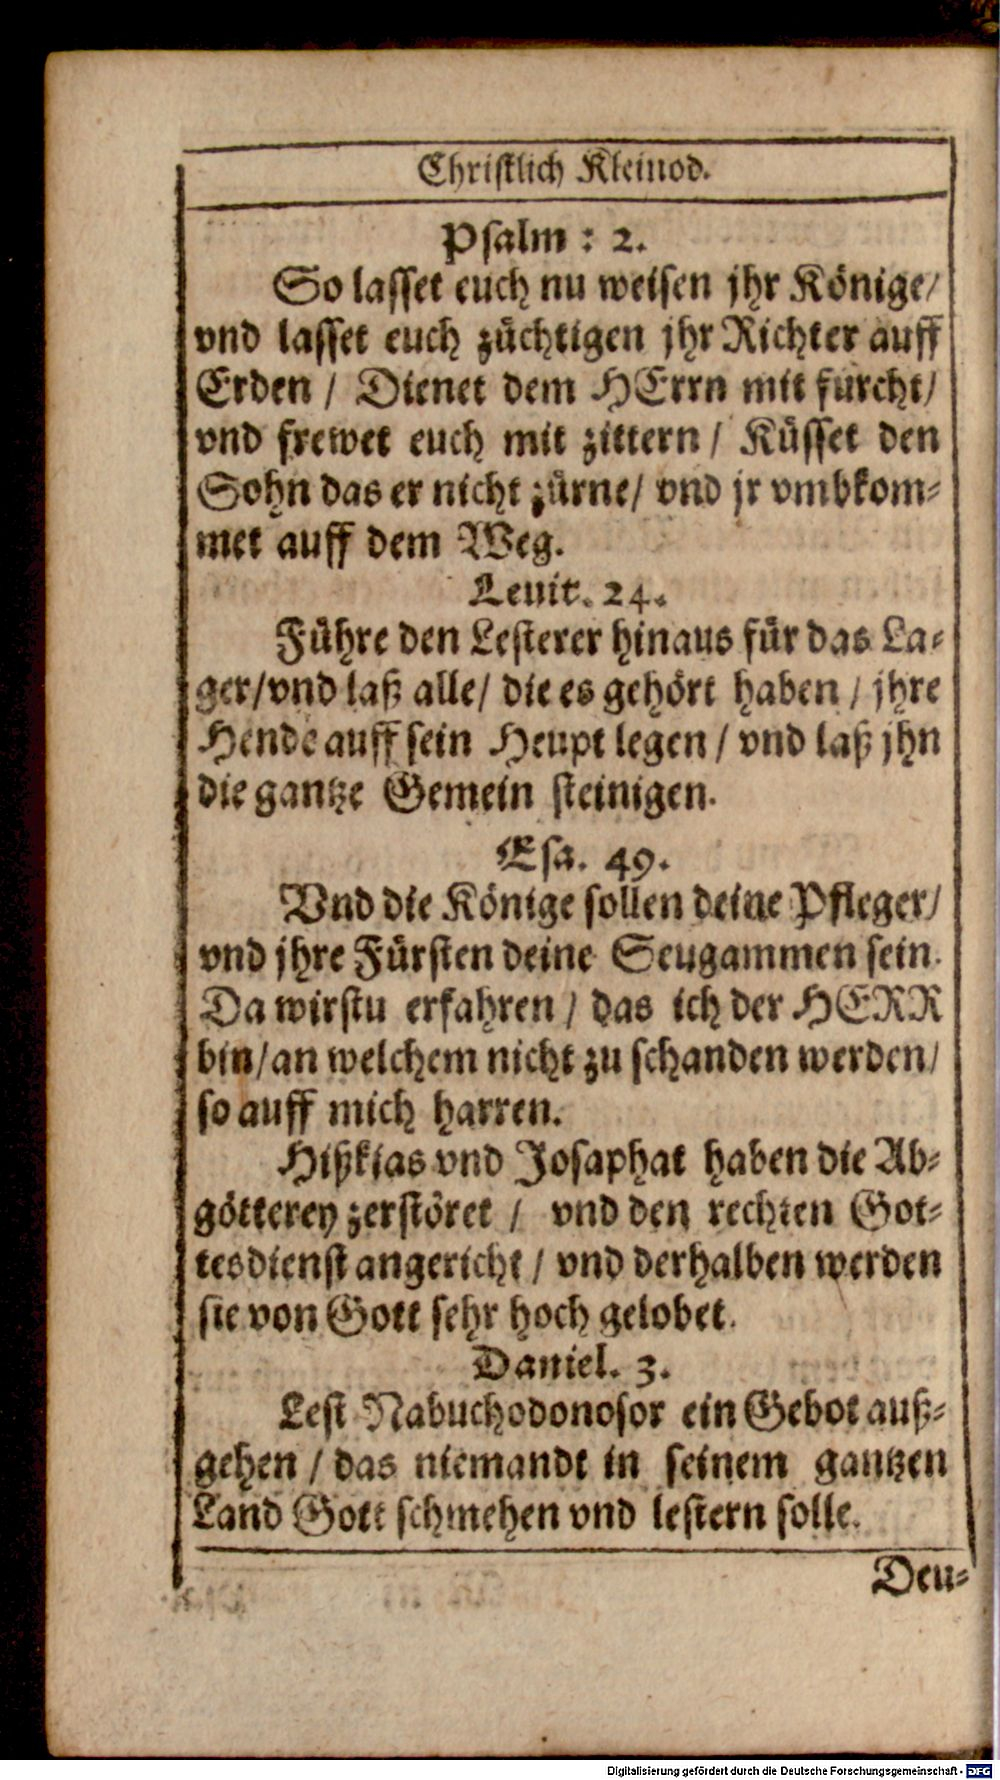 Christlich Kleinod.
Psalm : 2.
So lasset euch nu weisen jhr Könige/
vnd lasset euch züchtigen jhr Richter auff
Erden / Dienet dem HErrn mit furcht/
vnd frewet euch mit zittern / Küsset den
Sohn das er nicht zürne/ vnd jr vmbkom-
met auff dem Weg.
Leuit. 24.
Führe den Lesterer hinaus für das La-
ger/vnd laß alle/ die es gehört haben / jhre
Hende auff sein Heupt legen / vnd laß jhn
die gantze Gemein steinigen.
Esa. 49.
Vnd die Könige sollen deine Pfleger/
vnd jhre Fürsten deine Seugammen sein.
Da wirstu erfahren / das ich der HERR
bin/an welchem nicht zu schanden werden/
so auff mich harren.
Hißkias vnd Josaphat haben die Ab-
götterey zerstöret / vnd den rechten Got-
tesdienst angericht / vnd derhalben werden
sie von Gott sehr hoch gelobet.
Daniel. 3.
Lest Nabuchodonosor ein Gebot auß-
gehen / das niemandt in seinem gantzen
Land Gott schmehen vnd lestern solle.
Deu-
Digitalisierung gefördert durch die Deutsche Forschungsgemeinschaft - DFG